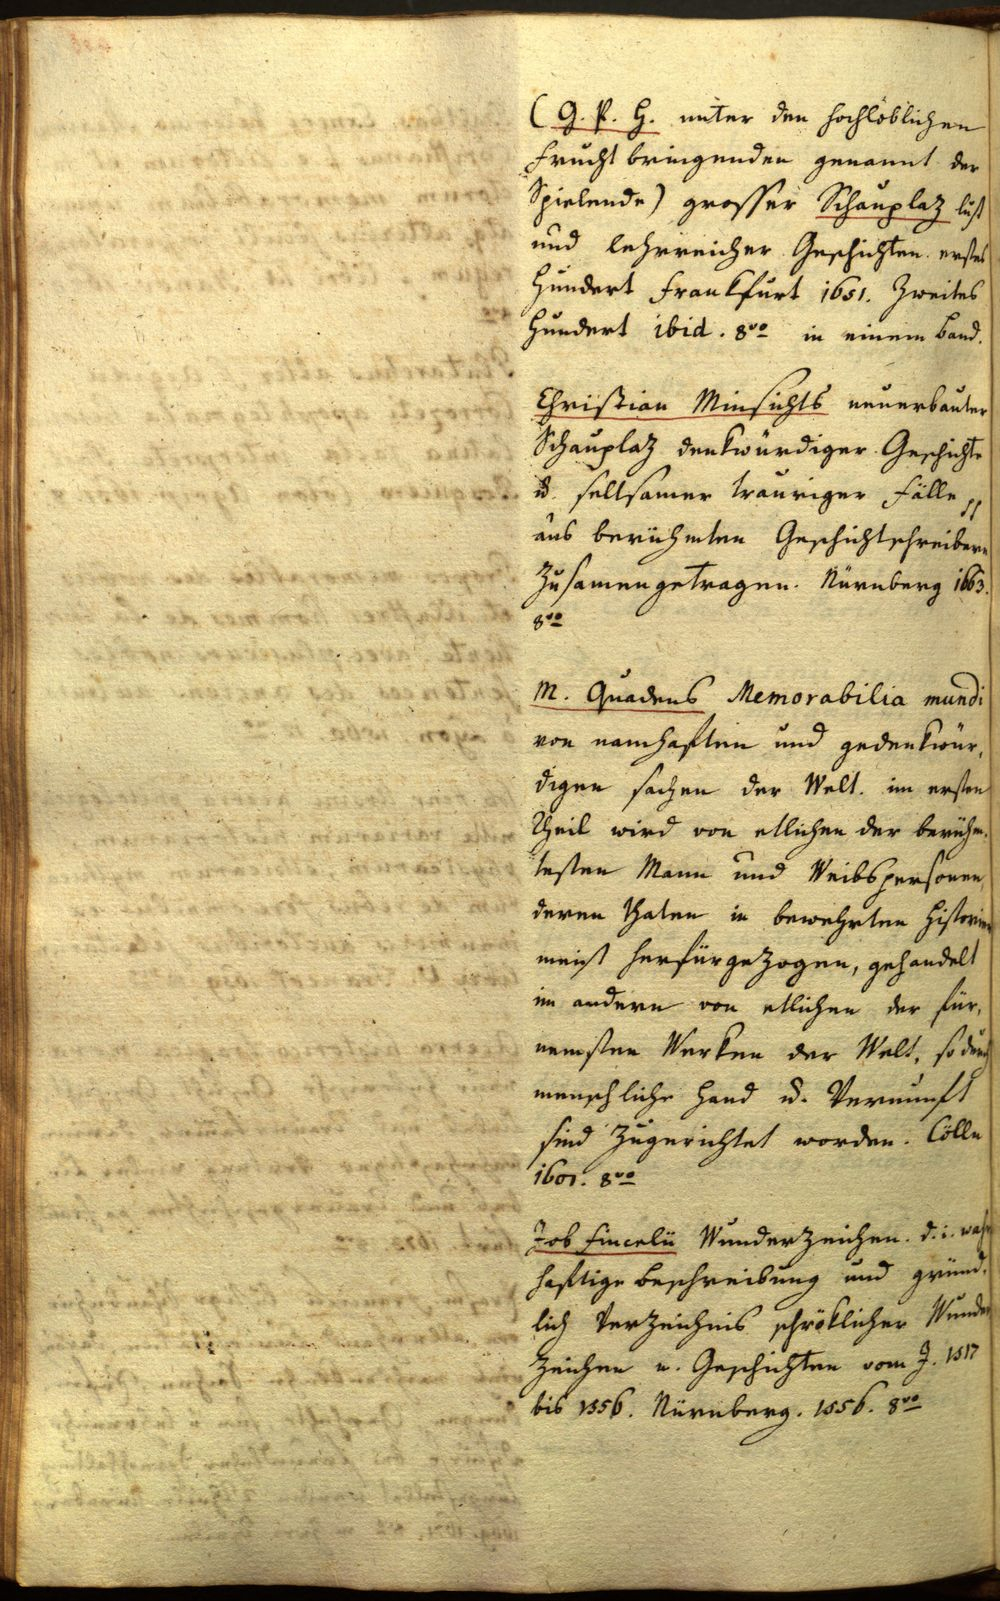 ( G. P. H. unter den hochlöblichen
Fruchtbringenden genannt der
Spielende) grosser Schauplaz lust
und lehrreicher Geschichten. erstes
Hundert Frankfurt 1651. Zweites
Hundert ibid. 8vo in einem Band.
Christian Minsichts neuerbauter
Schauplaz denkwürdiger Geschichte
u. seltsamer trauriger Fälle
aus berühmten Geschichtschreibern
zusamengetragen. Nürnberg 1663.
8vo
M. Quadens Memorabilia mundi
von namhafften und gedenkwür,
digen sachen der Welt. im ersten
Theil wird von etlichen der berühm,
testen Mann und Weibspersonen
deren Thaten in bewehrten Historien
meist herfürgezogen, gehandelt
im andern von etlichen der für,
nemsten Werken der Welt, so durch
menschliche Hand u. Vernunft
sind zugerichtet worden. Cölln
1601. 8vo
Job Fincelii Wunderzeichen. d. i. war
hafftige Beschreibung und gründ,
lich Verzeichnis schröklicher Wunder
zeichen u. Geschichten vom J. 1517
bis 1556. Nürnberg. 1556. 8vo